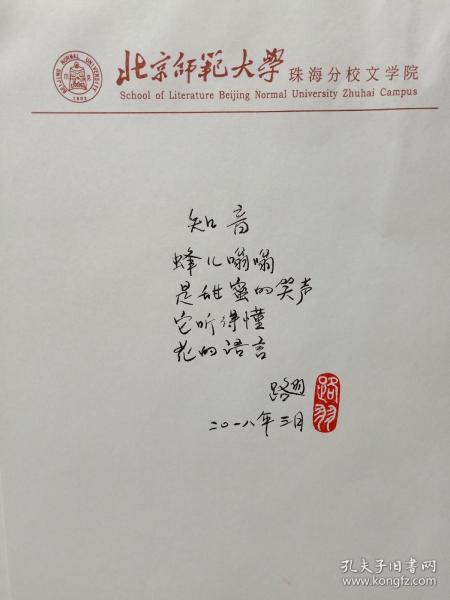 北京师范大学 珠海分校文学院
School of Literature Beijing Normal University Zhuhai Campus
知音
蜂儿嗡嗡
是甜蜜的笑声
它听得懂
花的语言
路羽
路羽
二〇一八年三月
孔夫子旧书网
www.kongfz.com